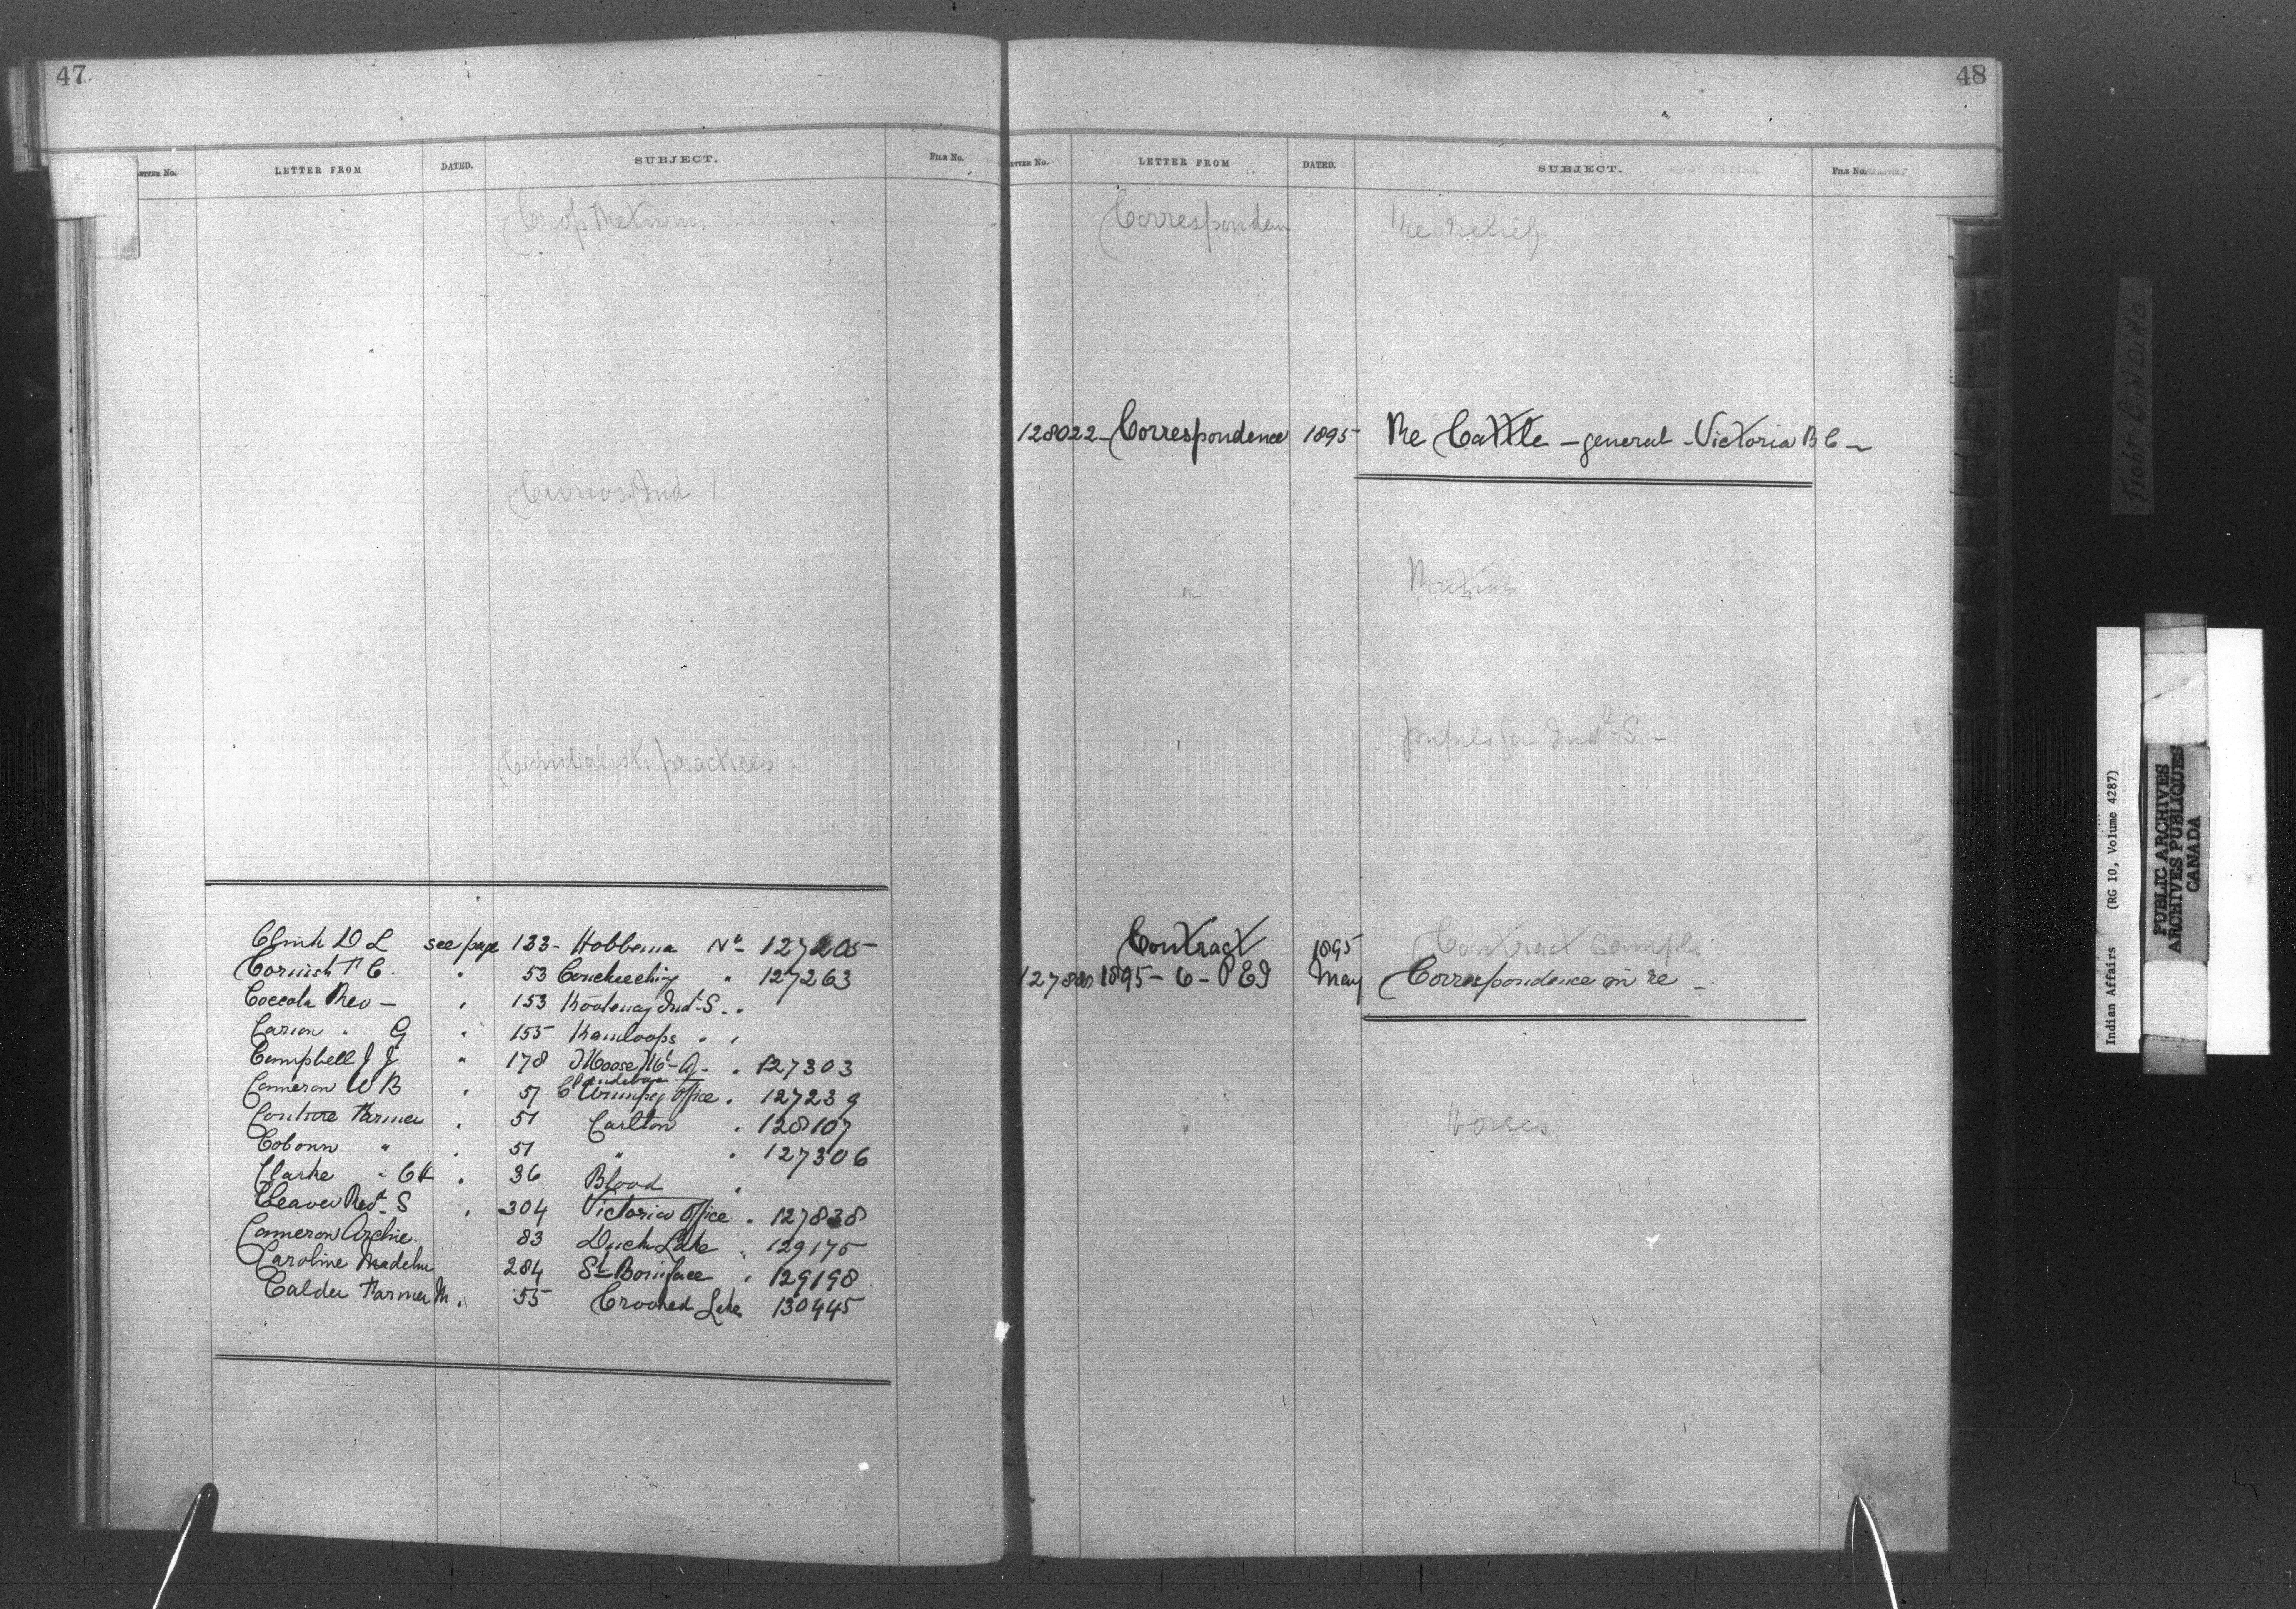 47
LETTER No. LETTER FROM DATED. SUBJECT. FILE No.
Crop Returns
Curios Ind
Canibalistic practices
Clink D L see page 133 - Hobbema No 127205
Cornish F C. " 53 Couchiching " 127263
Coccola Rev - " 153 Kootenay Ind S. "
Carion " G " 155 Kamloops " "
Campbell J J " 178 Moose Mt - A - " 127303
Cameron W B " 51 Winnipeg Office " 127239
Couture Farmer " 51 Carlton " 128107
Cobourn " " 51 " " 127306
Clarke " C H " 36 Blood "
Cleaver Revd S " 304 Victoria Office " 127838
Cameron Archie 83 Duck Lake " 129175
Caroline Madeline 284 St Boniface " 129198
Calder Farmer M. " 55 Crooked Lake 130445
48
LETTER No. LETTER FROM DATED. SUBJECT. FILE No.
Corresponden Re relief
128022 - Correspondence 1895 Re Cattle - general - Victoria B C -
" Rations
" pupils for Ind S -
Contract 1895 Contract Sample
1895 - 6 - P E I May Correspondence in re -
" Horses
TIGHT BINDING
Indian Affairs (RG 10, Volume 4287)
PUBLIC ARCHIVES
ARCHIVES PUBLIQUES
CANADA